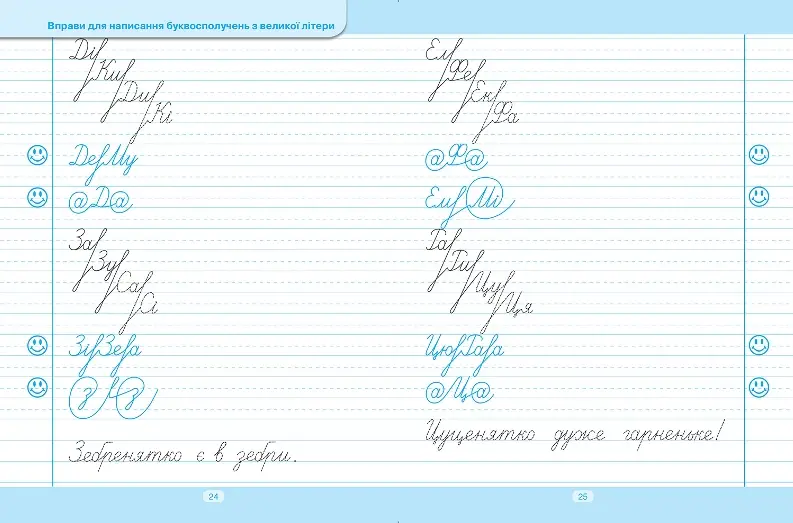 Вправи для написання буквосполучень з великої літери
Ді
Ки
Ди
Кі
Де Му
@ Д @
За
Зу
Са
Сі
Зі Зе а
З З
Зебренятко є в зебри.
24
Ел
Фе
Ек
Фа
@ Ф @
Ем Мі
Га
Ги
Цу
Ця
Цю Га а
@ Ц @
Цуценятко дуже гарненьке!
25